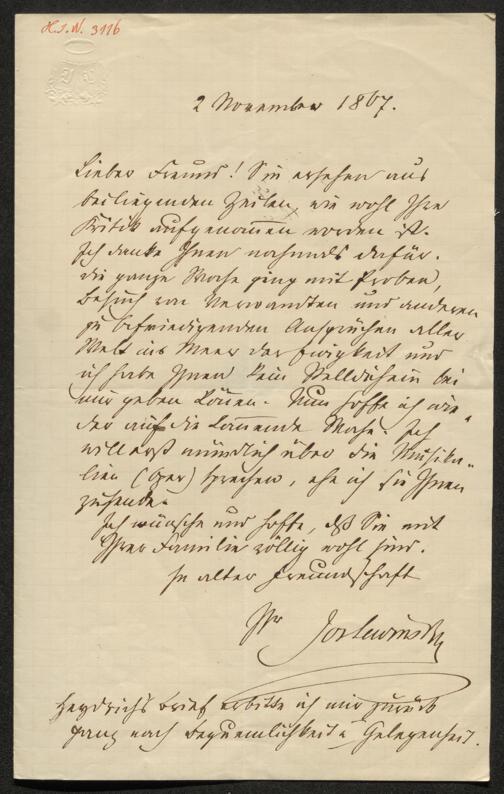 H.I.N. 3116
JL
2 November 1867.
Lieber Freund! Sie ersehen aus
beiliegenden Zeilen, wie wohl Ihre
Kritik aufgenommen worden ist.
Ich danke Ihnen nochmals dafür.
Die ganze Woche ging mit Proben,
Besuch von Verwandten und anderen
zu befriedigenden Ansprüchen aller
Welt ins Meer der Ewigkeit und
ich habe Ihnen kein Stelldichein bei
mir geben können. Nun hoffe ich wie-
der auf die kommende Woche. Ich
will erst mündlich über die Musika-
lien (Oper) sprechen, ehe ich sie Ihnen
zusende.
Ich wünsche und hoffe, daß Sie mit
Ihrer Familie völlig wohl sind.
In alter Freundschaft
Ihr Jos Lewinsky
Heydrichs Brief erbitte ich mir zurück
ganz nach Bequemlichkeit u Gelegenheit.